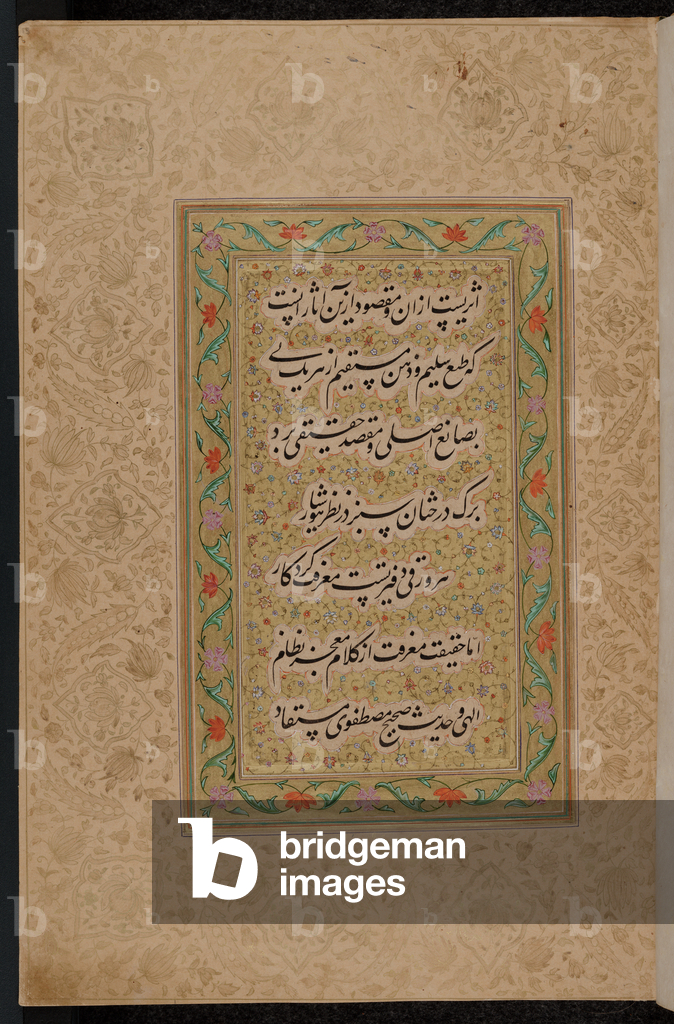 اثریست از ان و مقصود ازین آثار انست
که طبع سلیم و ذهن مستقیم از هر یک پی
بصانع اصلی و مقصد حقیقی برد
برک درختان سبز در نظر هوشیار
هر ورقی دفتریست معرفت کردکار
اما حقیقت معرفت از کلام معجز نظام
الهی و حدیث صحیح مصطفوی مستفاد
bridgeman
images